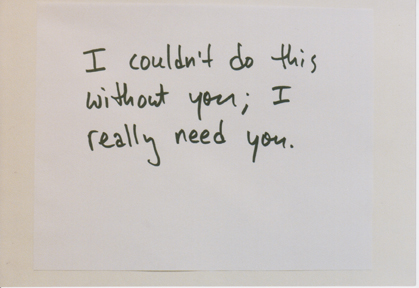 I couldn't do this
without you; I
really need you.